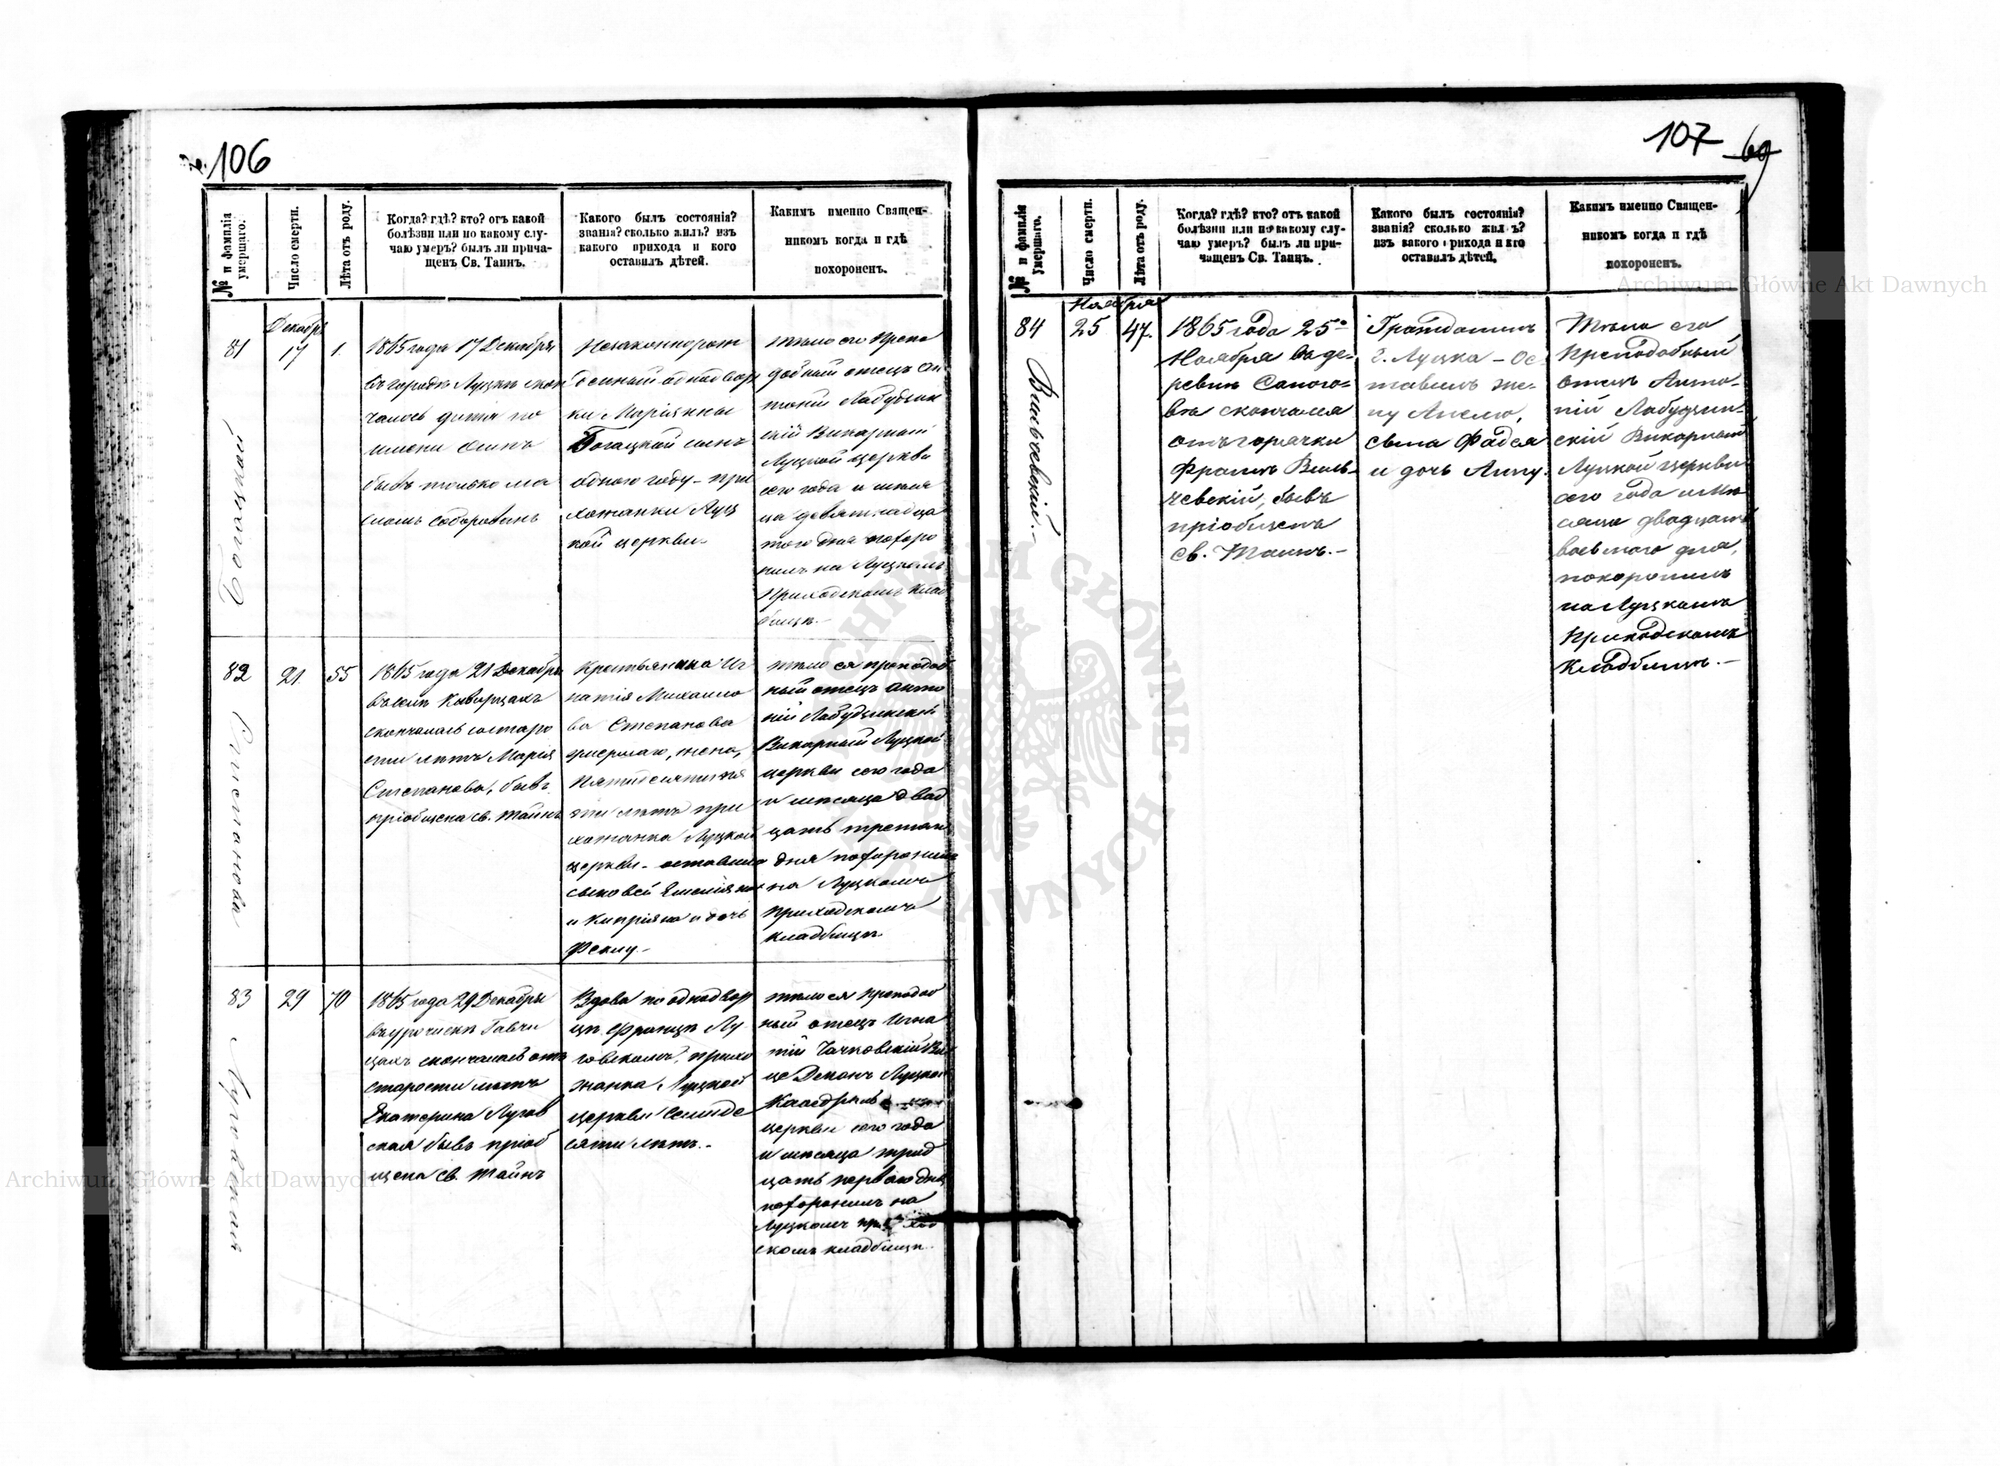 106
№ и фамилія умершаго.
Число смерти.
Лѣта отъ роду.
Когда? гдѣ? кто? отъ какой
болѣзни или по какому слу-
чаю умеръ? былъ ли прича-
щенъ Св. Таинъ.
Какого былъ состоянія?
званія? сколько жилъ? изъ
какого прихода и кого
оставилъ дѣтей.
Какимъ именно Священ-
никомъ когда и гдѣ
похороненъ.
81
Декабрь
17
1.
1865 года 17 Декабря
въ городѣ Луцкѣ скон
чалось дитя по
имени
бывъ только ма
сломъ соборованъ
Незаконнорож
денный однодвор
ки Маріянны
Богацкой сынъ
одного году – при
хожанки Луц
кой церкви
тѣло его Препо
добный отецъ Ан
тоній Лабудзин
скій Викарный
Луцкой церкви
сего года и мѣся
ца девятнадца
того дня похоро
нилъ на Луцкомъ
Приходскомъ клад
бищѣ.
82
Степанова
21
55
1865 года 21 Декабря
въ селѣ Киверцахъ
скончалась отъ старо
сти лѣтъ Марія
Степанова, бывъ
пріобщена св. Тайнъ
Крестьянина Иг
натія Михайло
ва Степанова
умершаго, жена,
пятидесяти пя
ти лѣтъ при
хожанка Луцкой
церкви – оставила
сыновей Емеліяна
и Кипріяна и дочь
Феклу –
тѣло ея преподоб
ный отецъ Анто
ній Лабудзинскій
Викарный Луцкой
церкви сего года
и мѣсяца двад
цать третьяго
дня похоронилъ
на Луцкомъ
приходскомъ
кладбищѣ
83
29
70
1865 года 29 Декабря
въ урочискѣ Гавчи
цахъ скончалась отъ
старости лѣтъ
Екатерина Лугов
ская бывъ пріоб
щена св. Тайнъ
Вдова по однодвор
цѣ Францѣ Лу-
говскомъ, прихо
жанка Луцкой
церкви семиде
сяти лѣтъ. –
тѣло ея Преподоб
ный отецъ Игна
тій
це Деканъ Луцкой
Каѳедраль
церкви сего года
и мѣсяца трид
цать перваго дня
похоронилъ на
Луцкомъ приход
скомъ кладбищѣ.
107
69
№ и фамилія умершаго.
Число смерти.
Лѣта отъ роду.
Когда? гдѣ? кто? отъ какой
болѣзни или по какому слу-
чаю умеръ? былъ ли при-
чащенъ Св. Таинъ.
Какого былъ состоянія?
званія? сколько жилъ?
изъ какого прихода и кго
оставилъ дѣтей.
Какимъ именно Священ-
никомъ когда и гдѣ
похороненъ.
Ноября
84
Вильчевскій. –
25
47.
1865 года 25го
Ноября въ де-
ревнѣ Сапого-
вѣ скончался
отъ горячки
Францъ Виль-
чевскій, бывъ
пріобщенъ
Св. Таинъ. –
Гражданинъ
г. Луцка – ос-
тавилъ же-
ну Анелю,
сына Фадея
и дочь Анну.
Тѣло его
Преподобный
отецъ Анто-
ній Лабудзин-
скій Викарный
Луцкой церкви
сего года и мѣ
сяца двадцать
восьмого дня,
похоронилъ
на Луцкомъ
Приходскомъ
Кладбищѣ. –
Archiwum Główne Akt Dawnych
Archiwum Główne Akt Dawnych